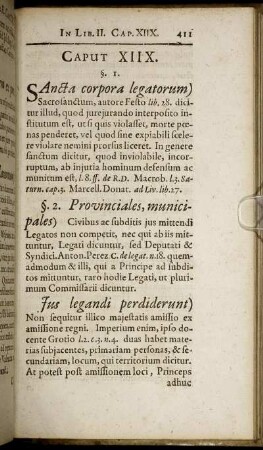 IN LIB. II. CAP. XIIX. 411
CAPUT XIIX.
§. 1.
SAncta corpora legatorum)
Sacrosanctum, autore Festo lib. 28. dici-
tur illud, quod jurejurando interposito
institutum est, ut si quis violasset, morte pœ-
nas penderet, vel quod sine expiabili scele-
re violare nemini prorsus liceret. In genere
sanctum dicitur, quod inviolabile, incor-
ruptum, ab injuria hominum defensum ac
munitum est, l. 8. ff. de R. D. Macrob. l. 3. Sa-
turn. cap. 3. Marcell. Donat. ad Liv. lib. 27.
§. 2. Provinciales, munici-
pales) Civibus ac subditis jus mittendi
Legatos non competit, nec qui ab iis mit-
tuntur, Legati dicuntur, sed Deputati &
Syndici. Anton. Perez. C. de legat. n. 18. quem-
admodum & illi, qui a Principe ad sub-
ditos mittuntur, raro hoc Legati, ut plu-
rimum Commissarii dicuntur.
Jus legandi perdiderunt)
Non sequitur illico majestatis amissio ex
amissione regni. Imperium enim, ipso do-
cente Grotio l. 2. c. 3. n. 4. duas habet mate-
rias subjacentes, primariam personas, & se-
cundariam, locum, qui territorium dicitur.
At potest post amissionem loci, Princeps
adhuc